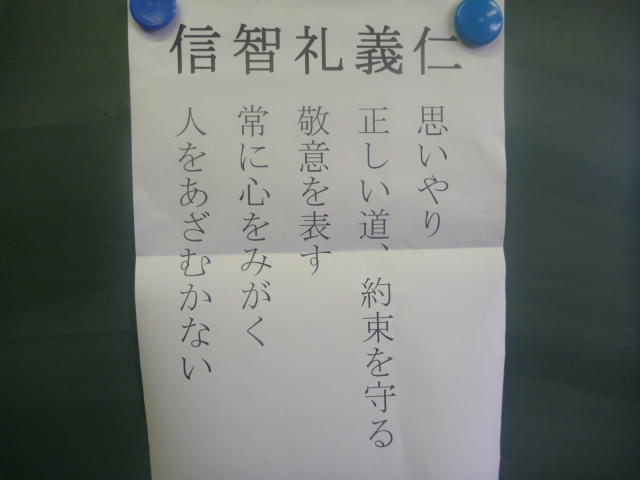 仁 思いやり
義 正しい道、約束を守る
礼 敬意を表す
智 常に心をみがく
信 人をあざむかない